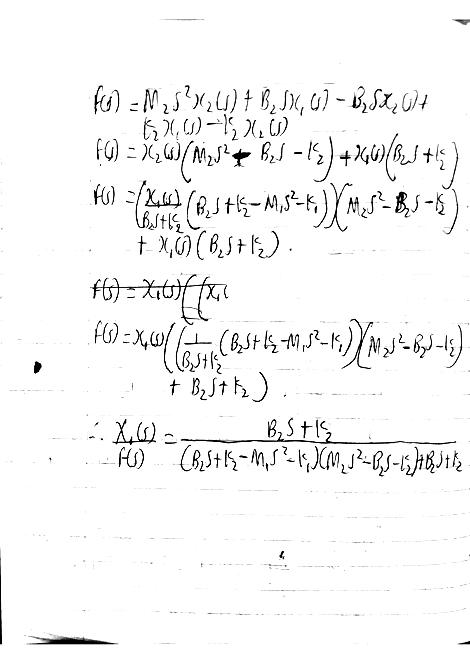 F(s) = M₂S²X₂(s) + B₂SX₁(s) - B₂SX₂(s) +
K₂X₁(s) - K₂X₂(s)
F(s) = X₂(s)(M₂S² - B₂S - K₂) + X₁(s)(B₂S + K₂)
F(s) = (X₁(s)/(B₂S+K₂) (B₂S + K₂ - M₁S² - K₁))(M₂S² - B₂S - K₂)
+ X₁(s)(B₂S + K₂).
F(s) = X₁(s)((X₁(
F(s) = X₁(s)((1/(B₂S+K₂) (B₂S + K₂ - M₁S² - K₁))(M₂S² - B₂S - K₂)
+ B₂S + K₂).
∴ X₁(s)/F(s) = B₂S + K₂ / (B₂S + K₂ - M₁S² - K₁)(M₂S² - B₂S - K₂) + B₂S + K₂